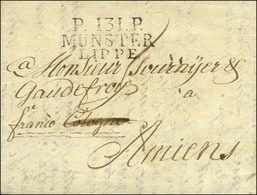 P. 131. P.
MUNSTER
LIPPE
a Monsieur Fournyer &
Gaudefroy
à
franco Cologne
Amiens